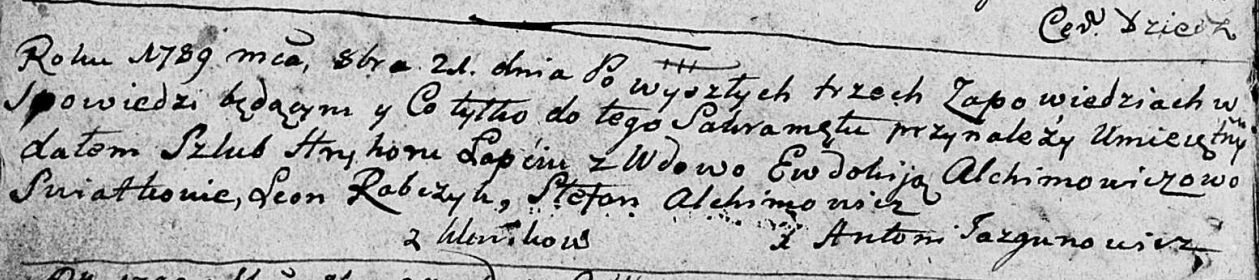 Cerk. Dziedz
Roku 1789 mca, 8bra 21. dnia Po wyszłych trzech Zapowiedziach w
Spowiedzi będącym y Co tylko do tego Sakramętu przynależy Umieiętny
dałem Szlub Hryhoru Łapciu z Wdowo Ewdokiją Alchimowiczowo
Swiatkowie, Leon Rabczyk, Stefan Alchimowicz
z Antoni Jazgunowicz